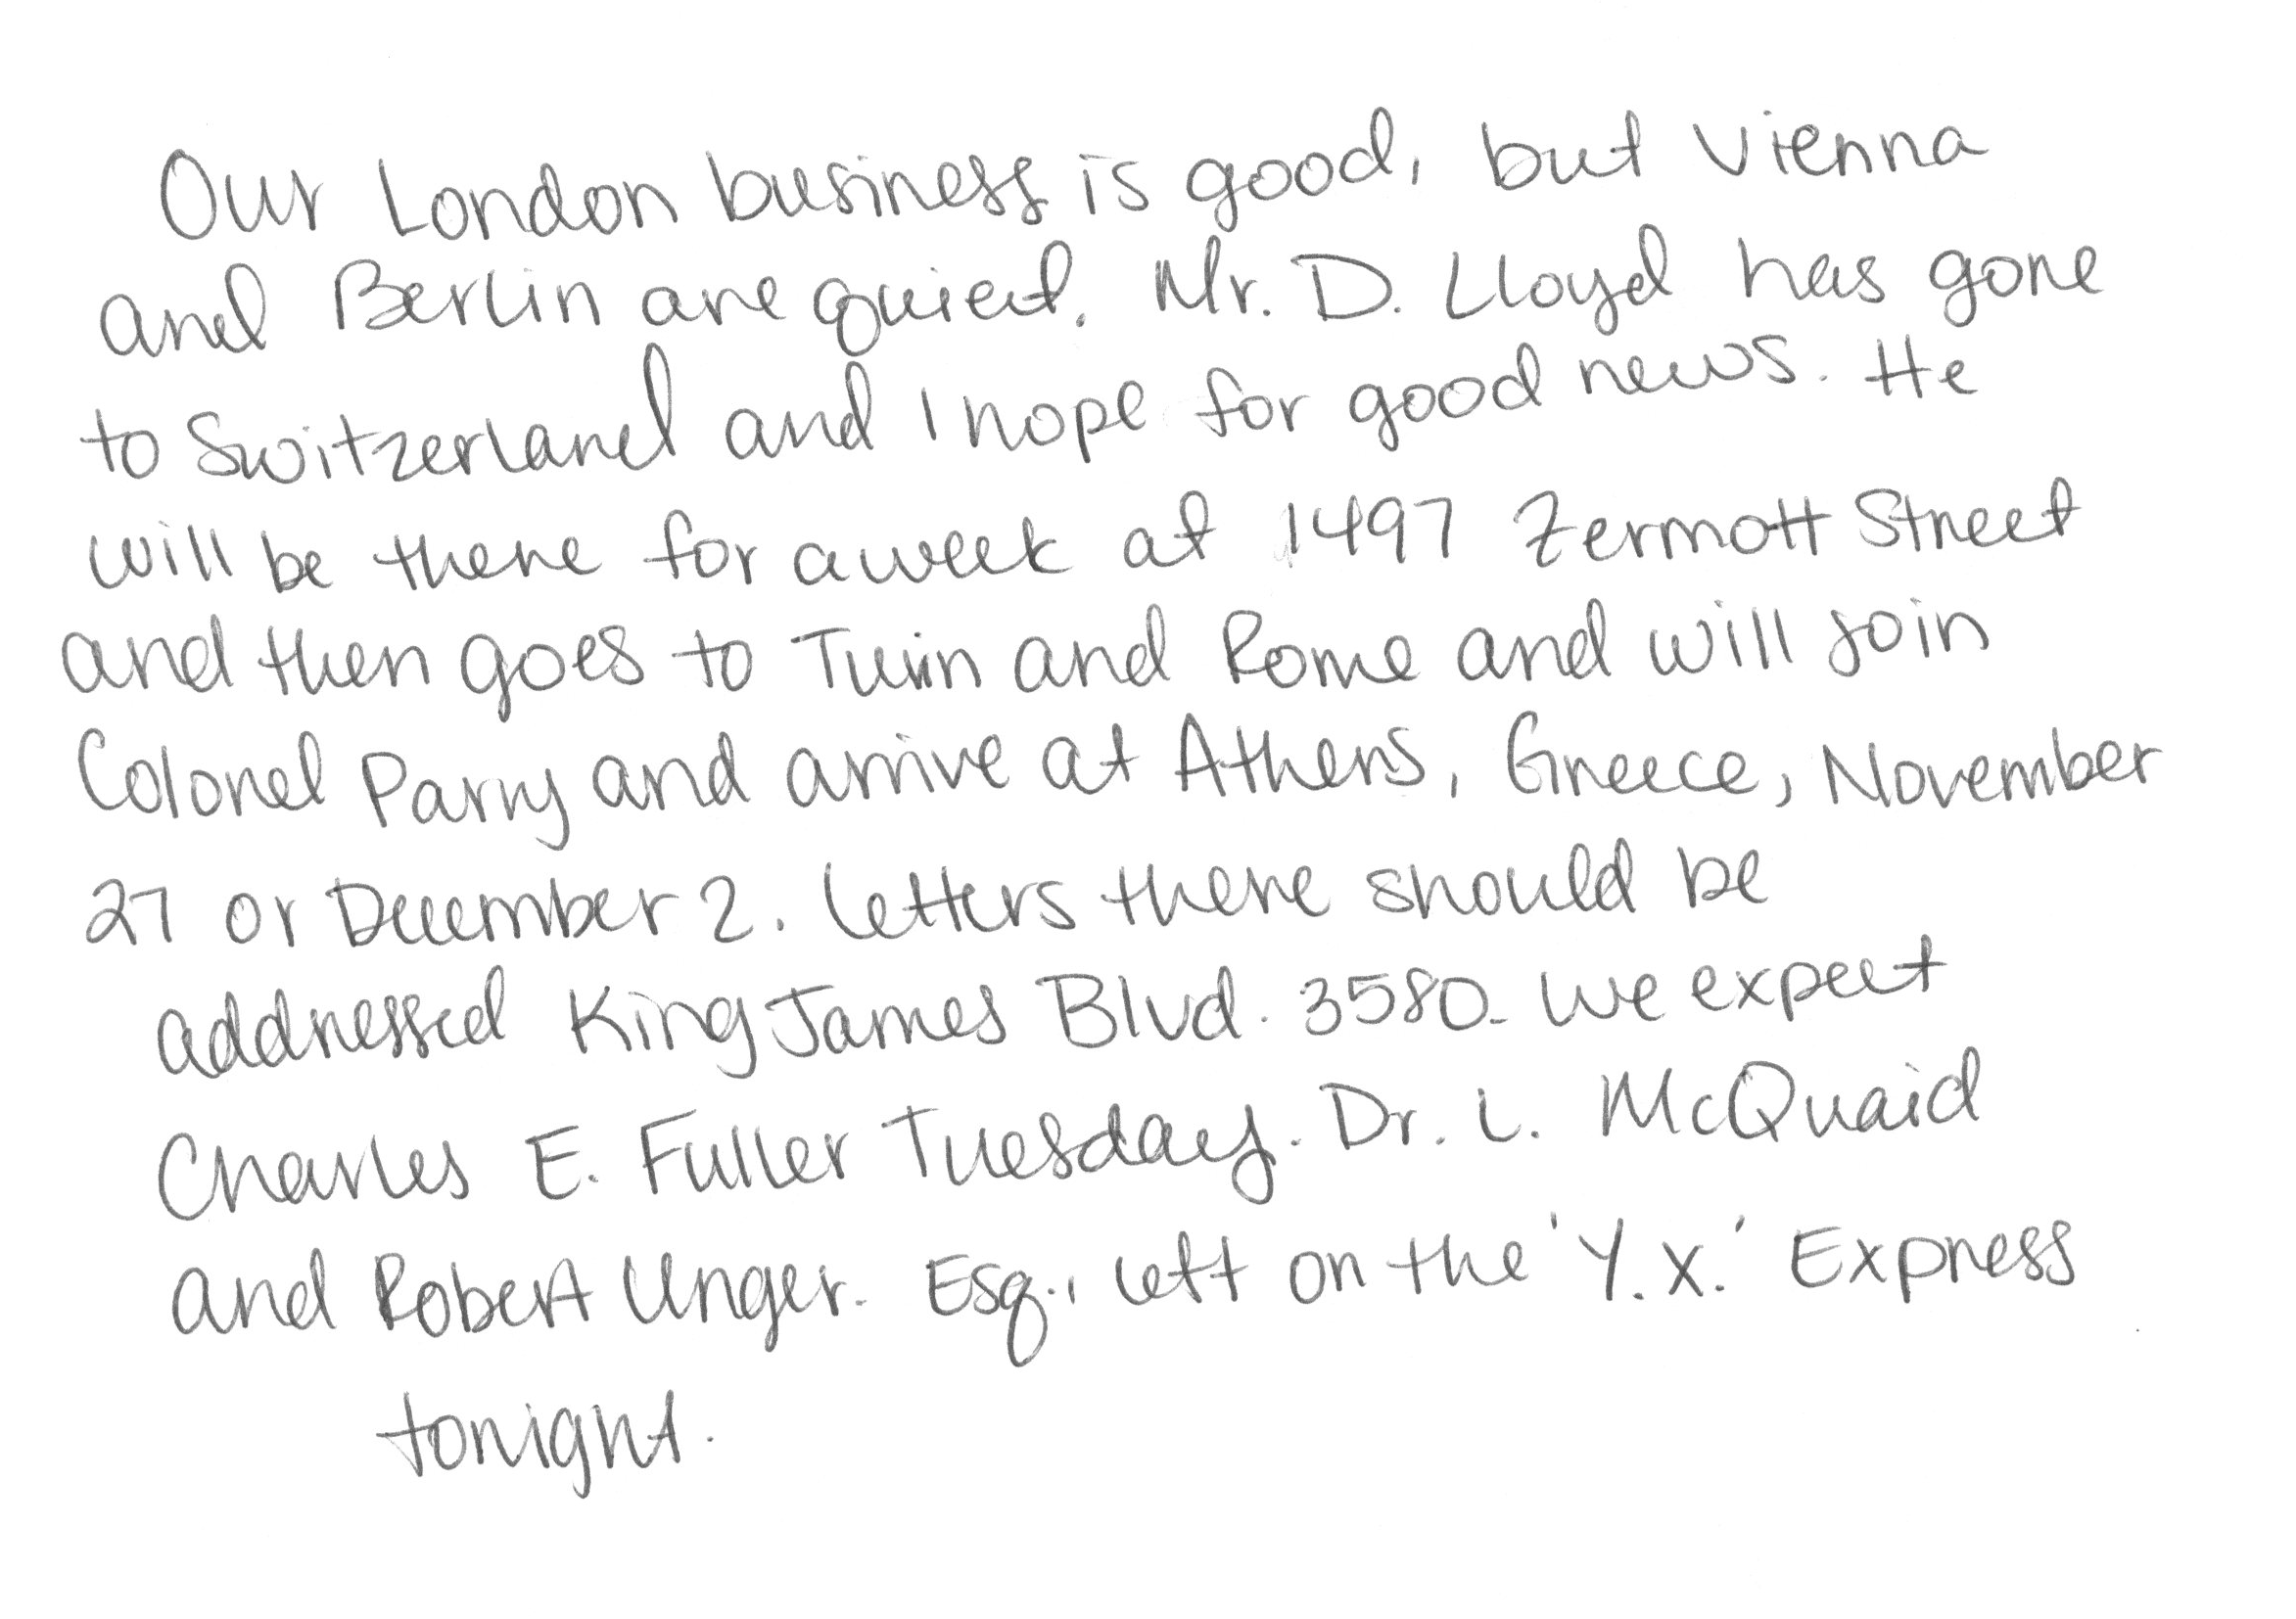 Our London business is good, but Vienna
and Berlin are quiet. Mr. D. Lloyd has gone
to Switzerland and I hope for good news. He
will be there for a week at 1497 Zermott Street
and then goes to Turin and Rome and will join
Colonel Parry and arrive at Athens, Greece, November
27 or December 2. Letters there should be
addressed King James Blvd. 3580. We expect
Charles E. Fuller Tuesday. Dr. L. McQuaid
and Robert Unger. Esq., left on the 'Y.X.' Express
tonight.